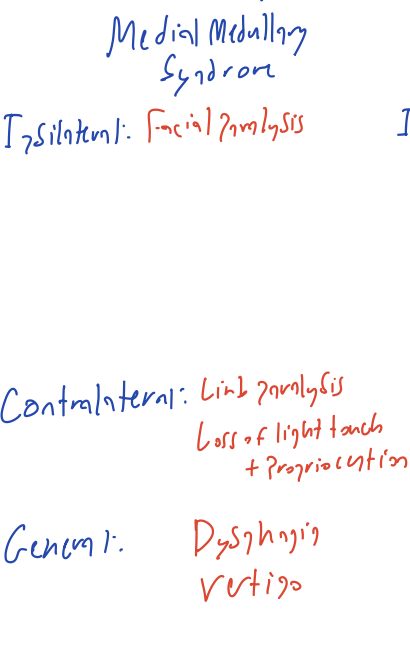 Medial Medullary
Syndrome
Ipsilateral: Facial Paralysis I
Contralateral: Limb paralysis
Loss of light touch
+ Proprioception
General: Dysphagia
Vertigo